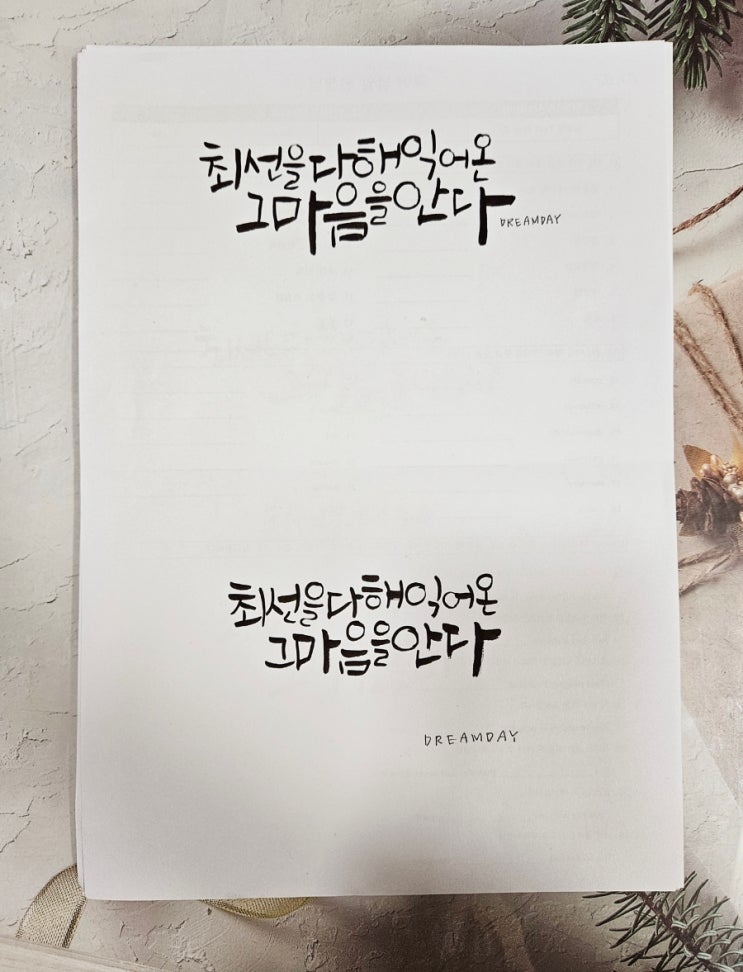 최선을다해익어온
그마음을안다
DREAMDAY
최선을다해익어온
그마음을안다
DREAMDAY